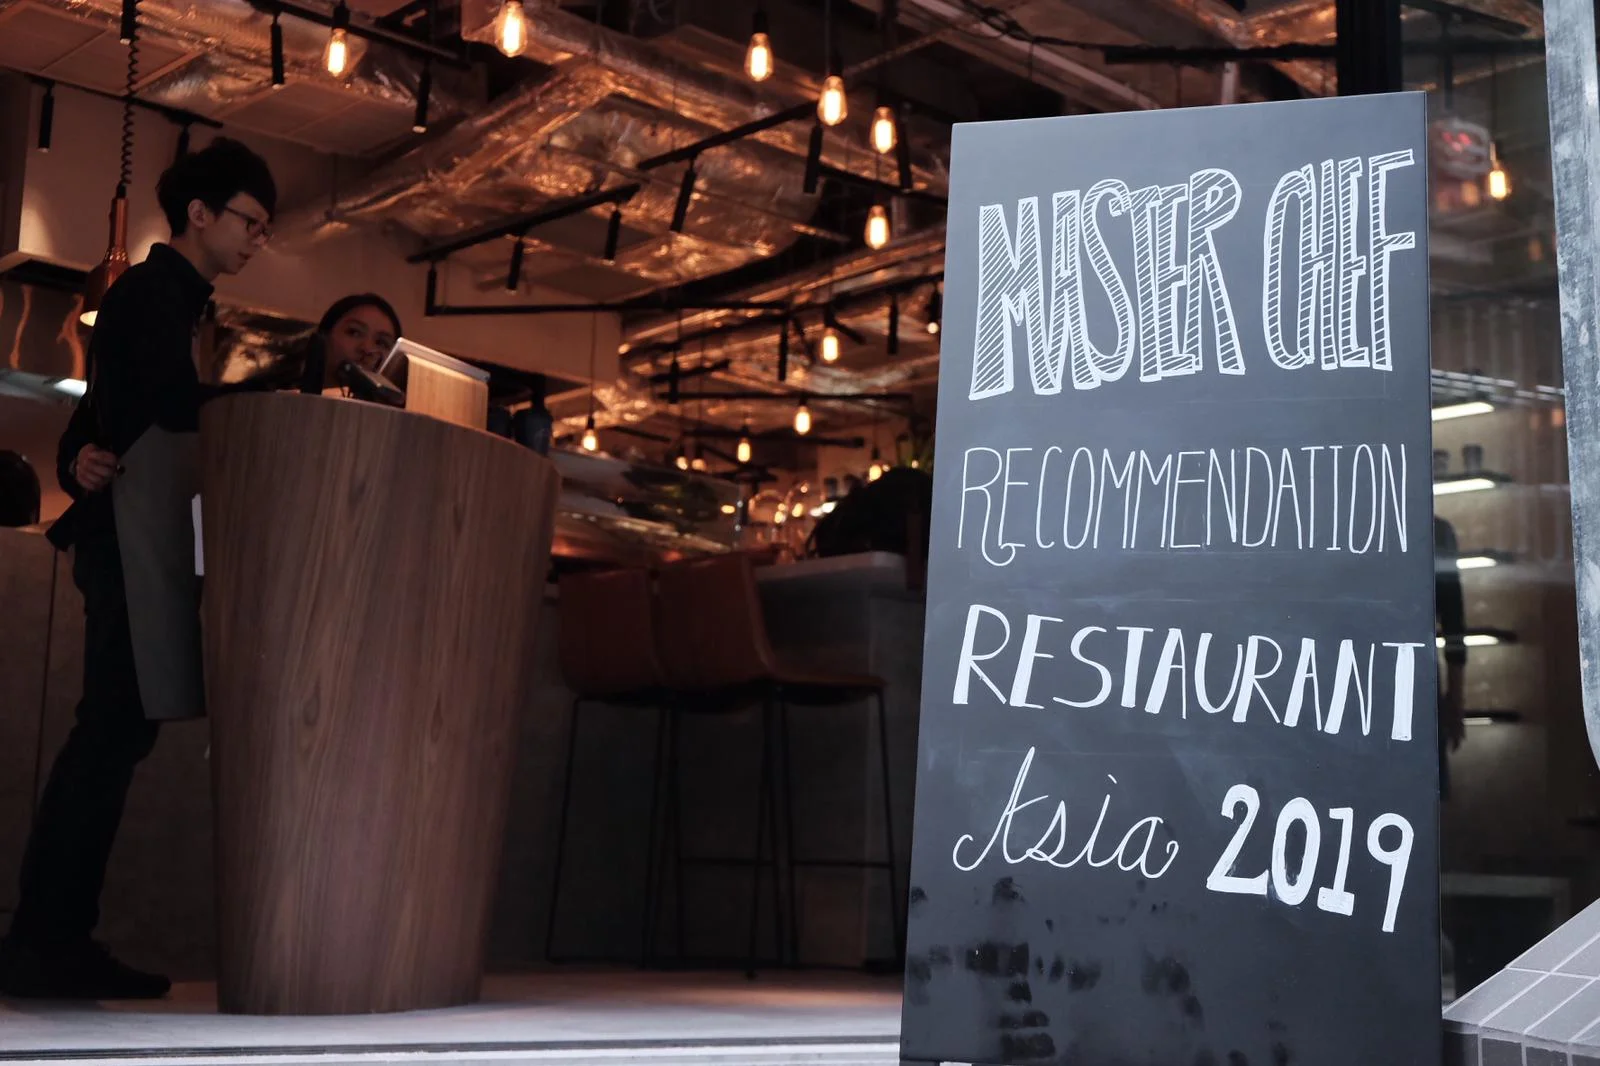 MASTER CHEF
RECOMMENDATION
RESTAURANT
Asia 2019